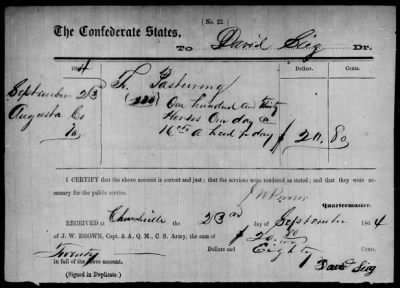 [No. 22.]
The Confederate States,
To David Sieg Dr.
1864
Dollars. Cents.
September 23d
For Pasturing
Augusta Co
(130)
One hundred and thirty
Va
Horses One day @
16cts a head p day $ 20. 80
I CERTIFY that the above account is correct and just; that the services were rendered as stated; and that they were ne-
cessary for the public service.
J W Brown
Quartermaster.
RECEIVED at Churchville the 23rd day of September 1864
of J. W. BROWN, Capt. & A. Q. M., C. S. Army, the sum of $ 20. 80
Twenty Dollars and Eighty
in full of the above account.
(Signed in Duplicate.)
David Sieg